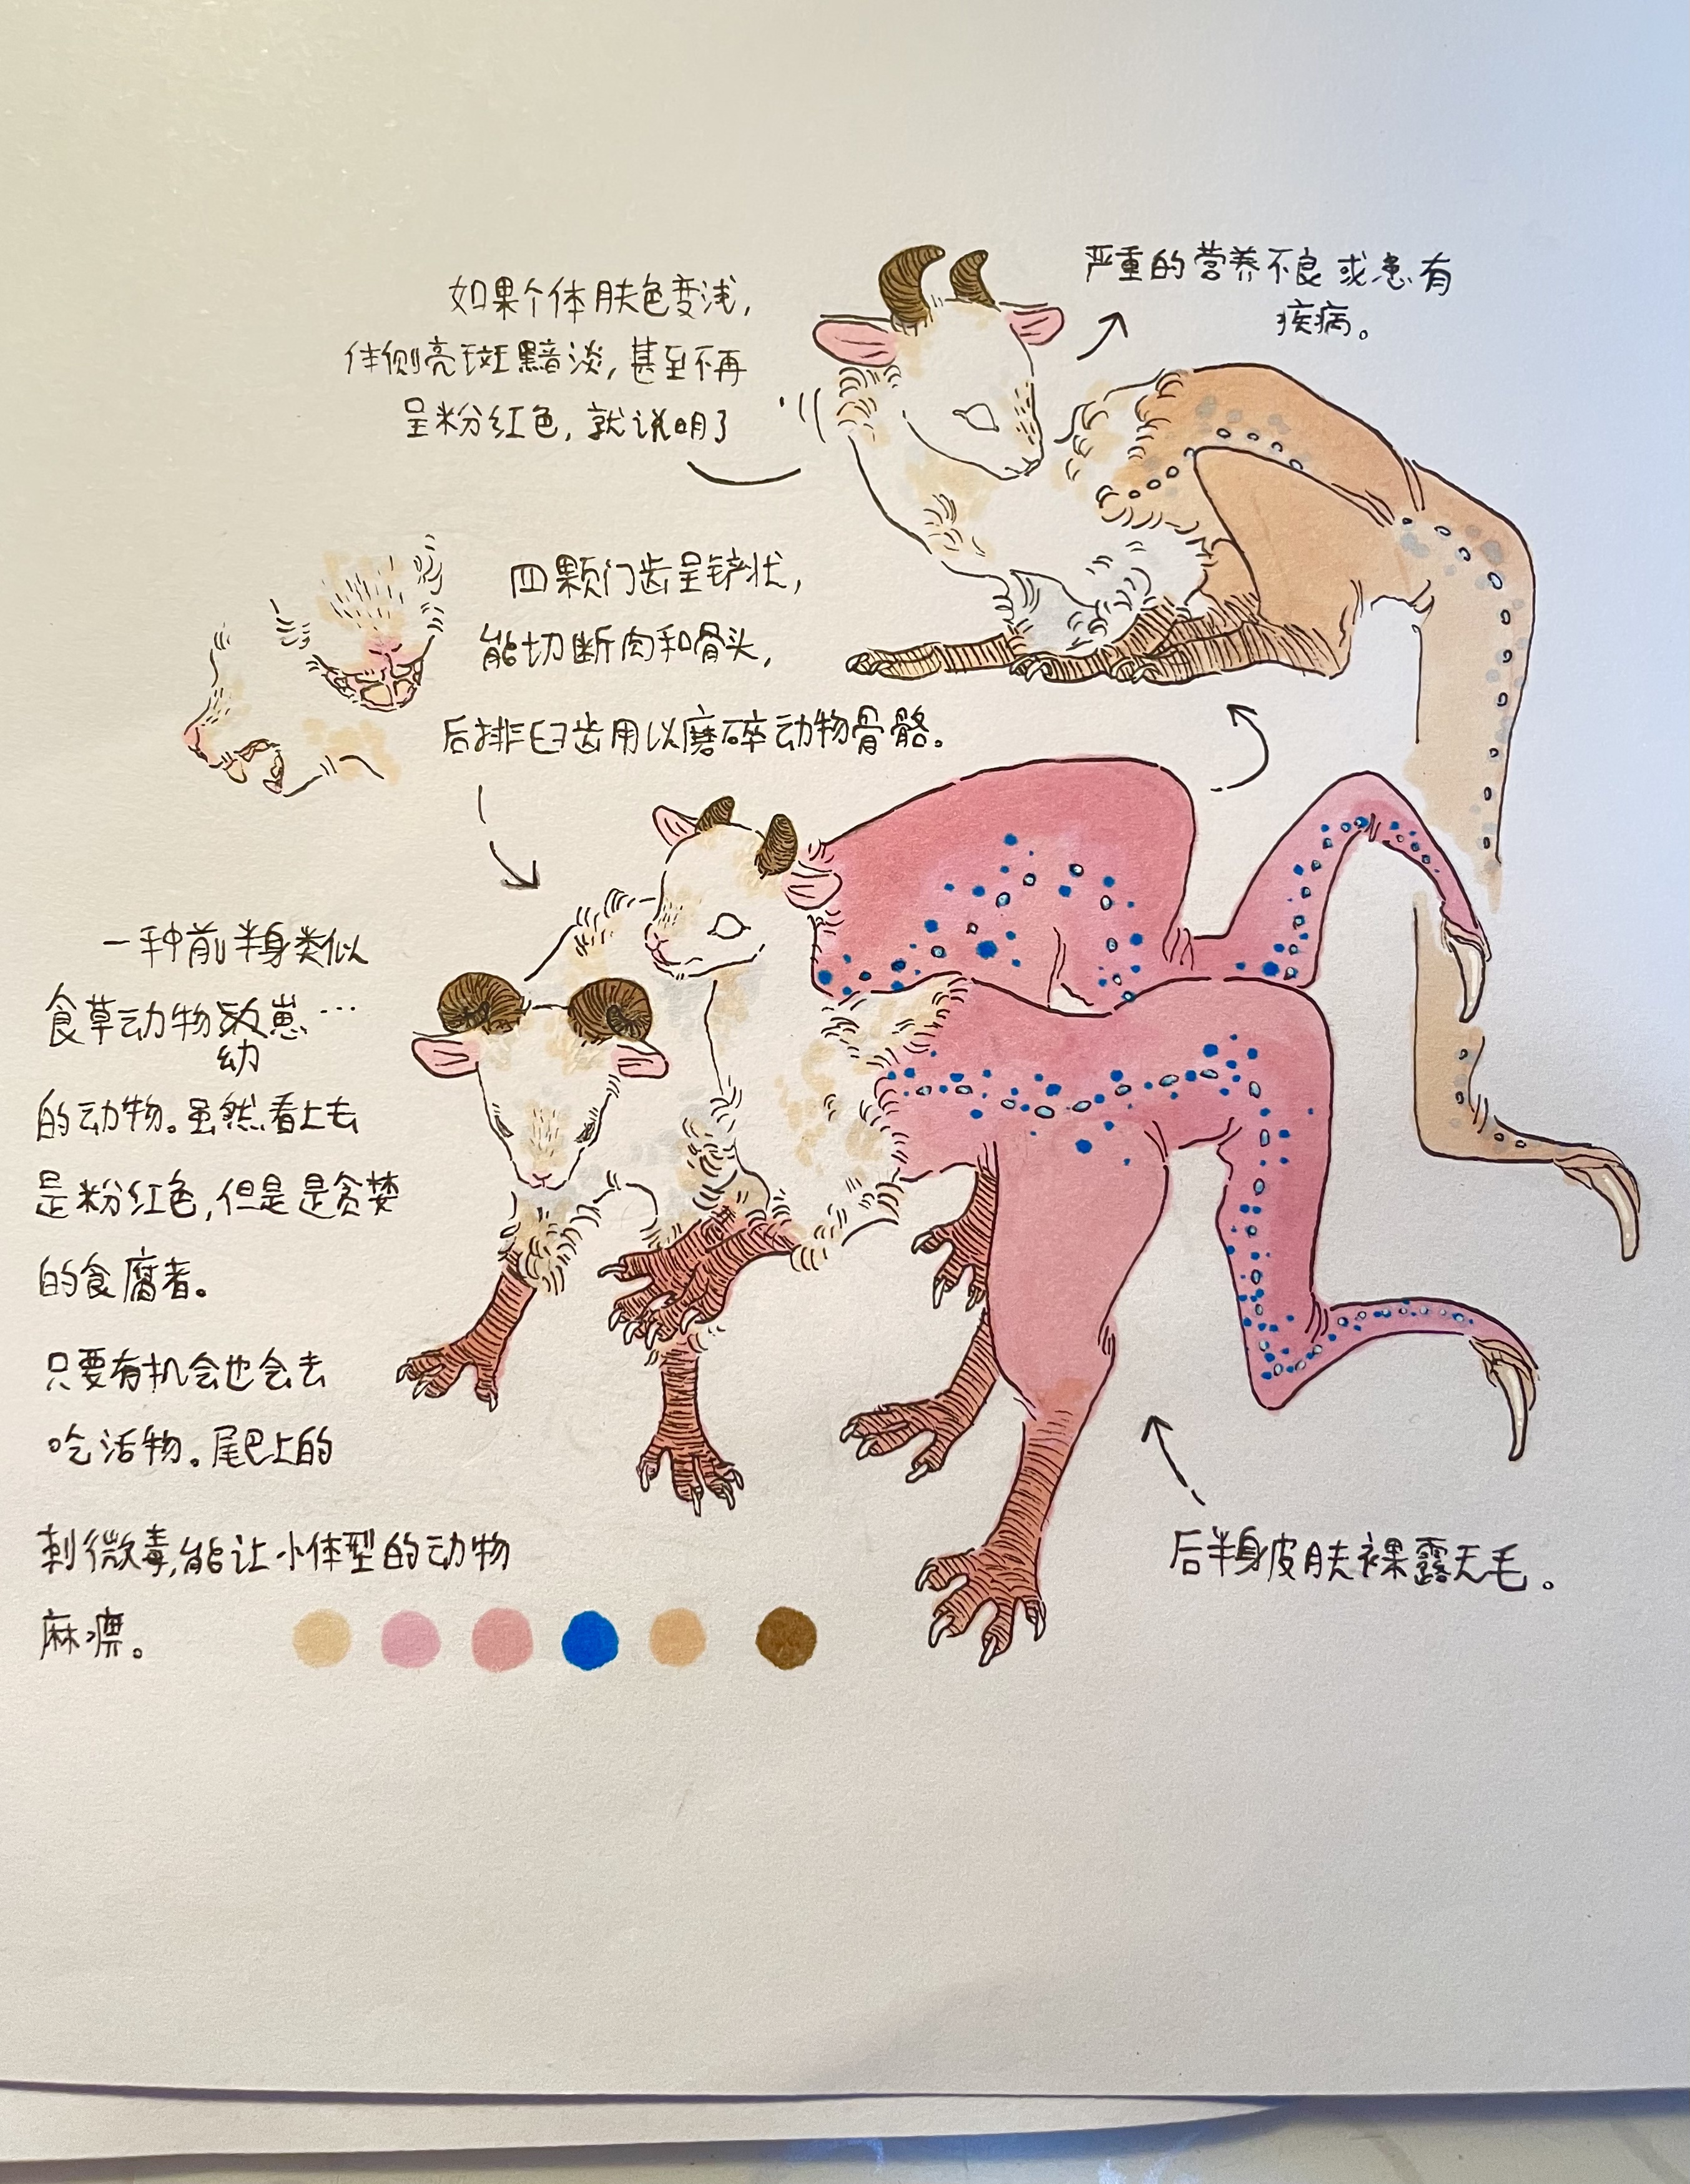 如果个体肤色变浅,
体侧亮斑黯淡,甚至不再
呈粉红色,就说明了
严重的营养不良或患有
疾病。
四颗门齿呈铲状,
能切断肉和骨头,
后排臼齿用以磨碎动物骨骼。
一种前半身类似
食草动物幼崽…
的动物。虽然看上去
是粉红色,但是是贪婪
的食腐者。
只要有机会也会去
吃活物。尾巴上的
刺微毒,能让小体型的动物
麻痹。
后半身皮肤裸露无毛。